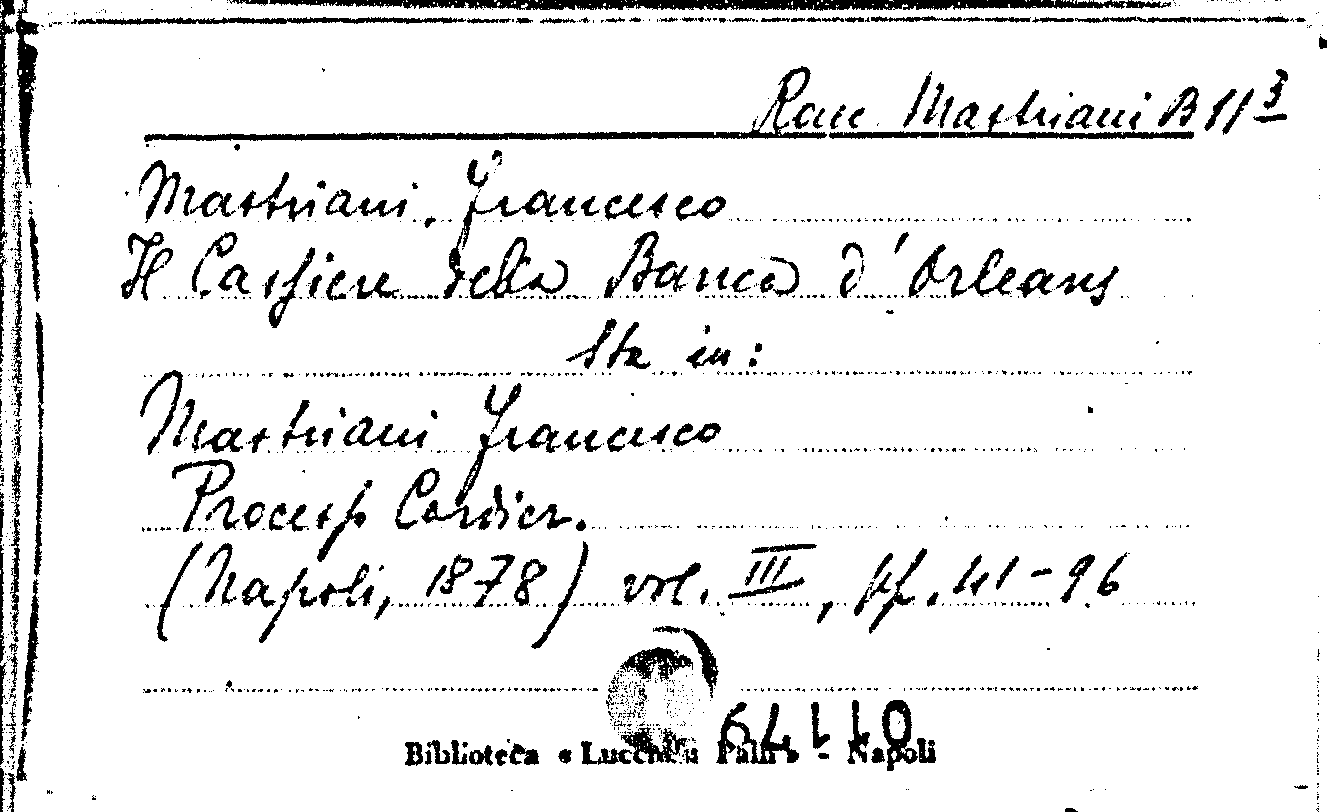 Racc. Mastriani B 11³
Mastriani, Francesco
Il Cassiere della Banca d'Orleans
Sta in:
Mastriani Francesco
Processo Cordier.
(Napoli, 1878) vol. III, pp. 41-96
Biblioteca « Lucchesi Palli » - Napoli